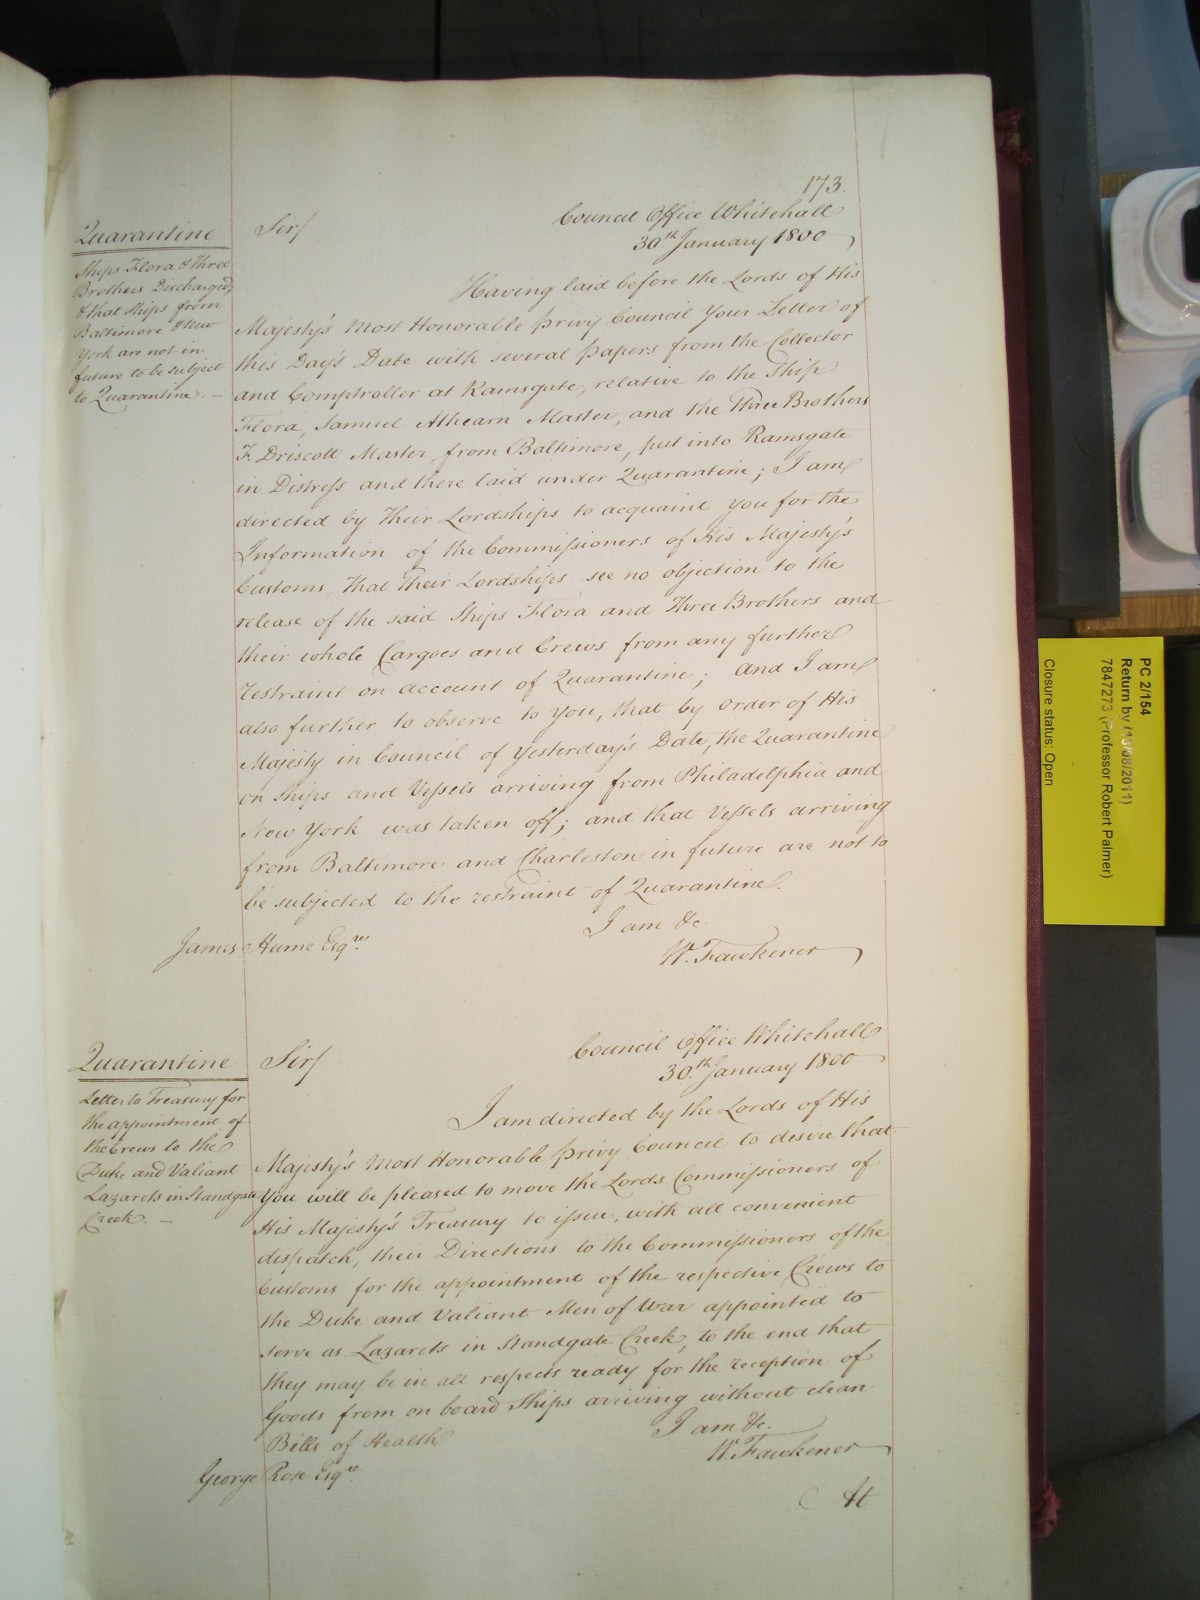 173.
Council Office Whitehall
30th January 1800
Quarantine
Ships Flora & Three
Brothers Discharged,
& that Ships from
Baltimore & New
York are not in
future to be subject
to Quarantine. —
Sir/
Having laid before the Lords of His
Majesty's Most Honorable Privy Council Your Letter of
this Day's Date with several Papers from the Collector
and Comptroller at Ramsgate, relative to the Ship
Flora, Samuel Athearn Master, and the Three Brothers
F. Driscott Master, from Baltimore, put into Ramsgate
in Distress and there laid under Quarantine; I am
directed by Their Lordships to acquaint You for the
Information of the Commissioners of His Majesty's
Customs, that Their Lordships see no objection to the
release of the said Ships Flora and Three Brothers and
their whole Cargoes and Crews from any further
restraint on account of Quarantine; And I am
also further to observe to You, that by Order of His
Majesty in Council of Yesterday's Date, the Quarantine
on Ships and Vessels arriving from Philadelphia and
New York was taken off; and that Vessels arriving
from Baltimore and Charleston in future are not to
be subjected to the restraint of Quarantine.
I am &c.
James Hume Esqre
W. Fawkener
Council Office Whitehall
30th January 1800
Quarantine
Letter to Treasury for
the appointment of
the Crews to the
Duke and Valiant
Lazarets in Standgate
Creek. —
Sir/
I am directed by the Lords of His
Majesty's Most Honorable Privy Council to desire that
You will be pleased to move the Lords Commissioners of
His Majesty's Treasury to issue, with all convenient
dispatch, their Directions to the Commissioners of the
Customs for the appointment of the respective Crews to
the Duke and Valiant Men of War appointed to
serve as Lazarets in Standgate Creek, to the end that
they may be in all respects ready for the reception of
Goods from on board Ships arriving without clean
Bills of Health
I am &c.
W. Fawkener
George Rose Esqre
At
PC 2/154
Return by (13/08/2011)
7847273 (Professor Robert Palmer)
Closure status: Open